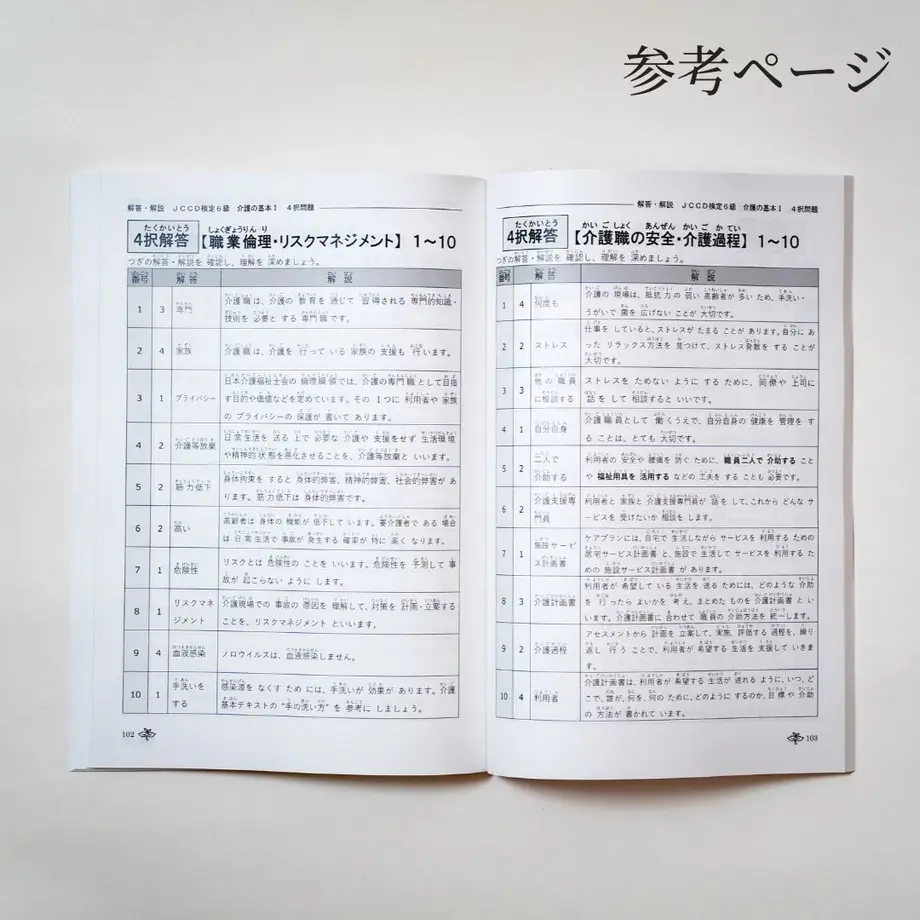 参考ページ
解答・解説 JCCD検定6級 介護の基本Ⅰ 4択問題
4択解答【職業倫理・リスクマネジメント】 1～10
つぎの解答・解説を 確認し、理解を 深めましょう。
番号 解 答 解 説
1 3 専門 介護職は、介護の 教育を 通じて 習得される 専門的知識・
技術を 必要と する 専門職です。
2 4 家族 介護職は、介護を 行って いる 家族の 支援も 行います。
3 1 プライバシー 日本介護福祉士会の 倫理綱領では、介護の専門職として目指
す目的や価値などを定めています。その 1つに 利用者や 家族
の プライバシーの 保護が 書いて あります。
4 2 介護等放棄 日常生活を 送る 上で 必要な 介護や 支援をせず 生活環境
や精神的 状態を悪化させることを、介護等放棄と いいます。
5 2 筋力低下 身体拘束を すると 身体的弊害、精神的弊害、社会的弊害が あ
ります。筋力低下は 身体的弊害です。
6 2 高い 高齢者は 身体の 機能が 低下して います。要介護者で ある 場合
は 日常生活で 事故が 発生する 確率が 特に 高く なります。
7 1 危険性 リスクとは 危険性の ことを いいます。危険性を 予測して 事
故が 起こらない ように します。
8 1 リスクマネ
ジメント 介護現場での 事故の 原因を 理解して、対策を 計画・立案する
ことを、リスクマネジメント といいます。
9 4 血液感染 ノロウイルスは、血液感染しません。
10 1 手洗いを
する 感染源を なくす ため には、手洗いが 効果が あります。介護
基本テキストの “手の洗い方” を 参考に しましょう。
102
解答・解説 JCCD検定6級 介護の基本Ⅰ 4択問題
4択解答【介護職の安全・介護過程】 1～10
つぎの解答・解説を 確認し、理解を 深めましょう。
番号 解 答 解 説
1 4 何度も 介護の 現場は、抵抗力の 弱い 高齢者が 多い ため、手洗い・
うがいで 菌を 広げない ことが 大切です。
2 2 ストレス 仕事を していると、ストレスが たまる ことが あります。自分に あ
った リラックス方法を 見つけて、ストレス発散を する ことが
大切です。
3 3 他の 職員
に相談する ストレスを ためない ように する ために、同僚や 上司に
話を して 相談すると いいです。
4 1 自分自身 介護職員として 働くうえで、自分自身の 健康を 管理を す
る ことは、とても 大切です。
5 2 二人で
介助する 利用者の 安全や 腰痛を 防ぐ ために、職員二人で 介助する こと
や 福祉用具を 活用する などの 工夫を する ことも 必要です。
6 2 介護支援専
門員 利用者と 家族と 介護支援専門員が 話を して、これから どんな サ
ービスを 受けたいか 相談を します。
7 1 施設サービ
ス計画書 ケアプランには、自宅で 生活しながら サービスを 利用する ための
居宅サービス計画書と、施設で 生活して サービスを 利用する た
めの 施設サービス計画書が あります。
8 3 介護計画書 利用者が 希望して いる 生活を 送る ためには、どのような 介助
を 行ったら よいかを 考え、まとめた ものを 介護計画書と い
います。介護計画書に 合わせて 職員の 介助方法を 統一します。
9 2 介護過程 アセスメントから 計画を 立案して、実施、評価する 過程を、繰り
返し 行う ことで、利用者が 希望する 生活を 支援して いきま
す。
10 4 利用者 介護計画書は、利用者が 希望する 生活が 送れる ように、いつ、ど
こで、誰が、何を、何の ために、どのように するのか、目標や 介助
の 方法が 書かれて います。
103